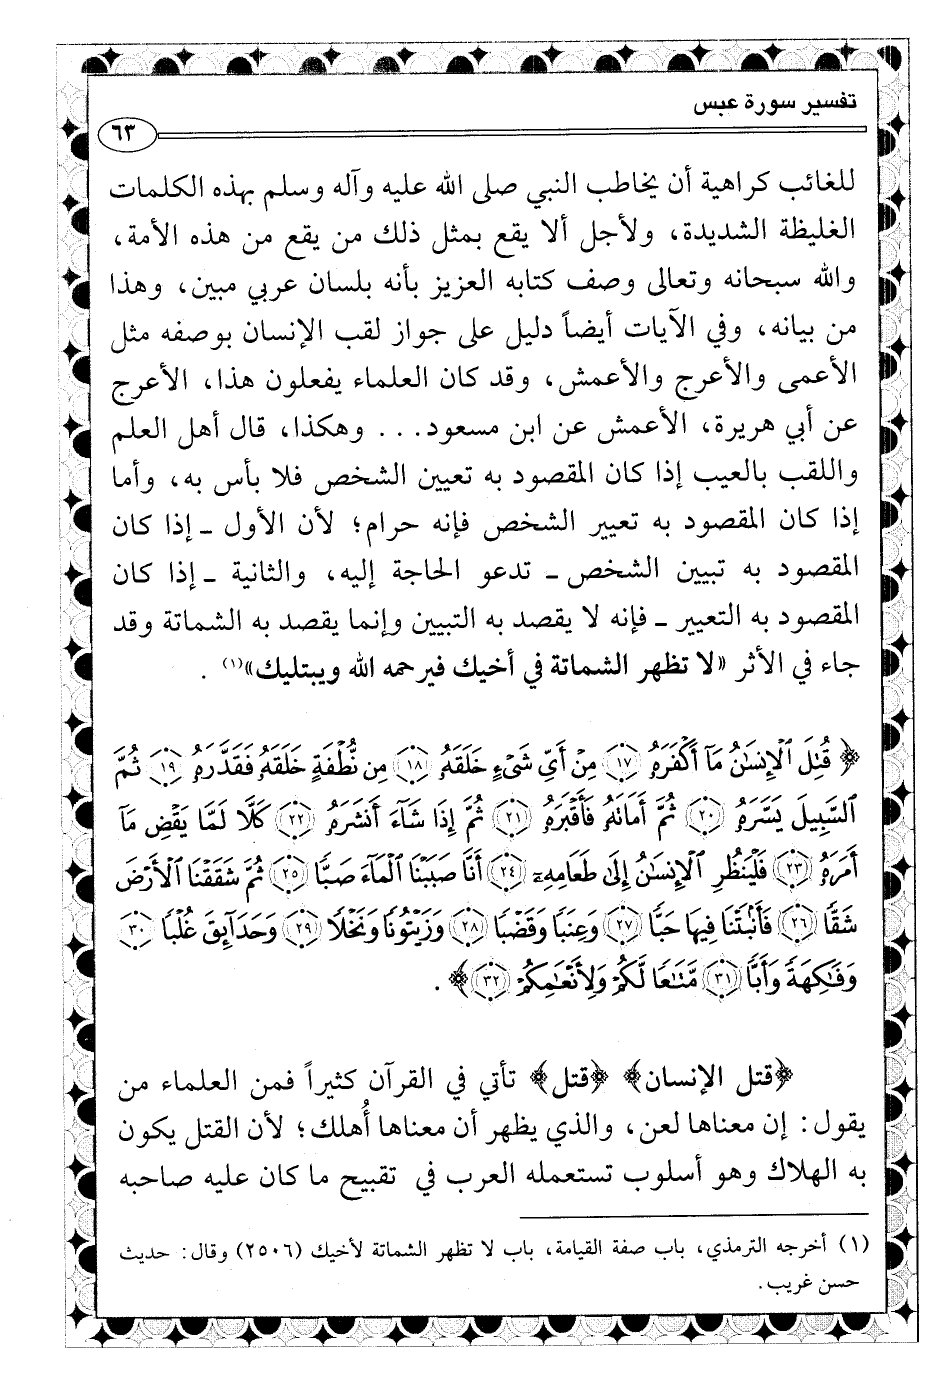 تفسير سورة عبس
٦٣
للغائب كراهية أن يخاطب النبي صلى الله عليه وآله وسلم بهذه الكلمات
الغليظة الشديدة، ولأجل ألا يقع بمثل ذلك من يقع من هذه الأمة،
والله سبحانه وتعالى وصف كتابه العزيز بأنه بلسان عربي مبين، وهذا
من بيانه، وفي الآيات أيضاً دليل على جواز لقب الإنسان بوصفه مثل
الأعمى والأعرج والأعمش، وقد كان العلماء يفعلون هذا، الأعرج
عن أبي هريرة، الأعمش عن ابن مسعود... وهكذا، قال أهل العلم
واللقب بالعيب إذا كان المقصود به تعيين الشخص فلا بأس به، وأما
إذا كان المقصود به تعيير الشخص فإنه حرام؛ لأن الأول ـ إذا كان
المقصود به تبيين الشخص ـ تدعو الحاجة إليه، والثانية ـ إذا كان
المقصود به التعيير ـ فإنه لا يقصد به التبيين وإنما يقصد به الشماتة وقد
جاء في الأثر «لا تظهر الشماتة في أخيك فيرحمه الله ويبتليك»(١) .
﴿ قُتِلَ ٱلْإِنسَٰنُ مَآ أَكْفَرَهُۥ ١٧ مِنْ أَىِّ شَىْءٍ خَلَقَهُۥ ١٨ مِن نُّطْفَةٍ خَلَقَهُۥ فَقَدَّرَهُۥ ١٩ ثُمَّ
ٱلسَّبِيلَ يَسَّرَهُۥ ٢٠ ثُمَّ أَمَاتَهُۥ فَأَقْبَرَهُۥ ٢١ ثُمَّ إِذَا شَآءَ أَنشَرَهُۥ ٢٢ كَلَّا لَمَّا يَقْضِ مَآ
أَمَرَهُۥ ٢٣ فَلْيَنظُرِ ٱلْإِنسَٰنُ إِلَىٰ طَعَامِهِۦٓ ٢٤ أَنَّا صَبَبْنَا ٱلْمَآءَ صَبًّا ٢٥ ثُمَّ شَقَقْنَا ٱلْأَرْضَ
شَقًّا ٢٦ فَأَنۢبَتْنَا فِيهَا حَبًّا ٢٧ وَعِنَبًا وَقَضْبًا ٢٨ وَزَيْتُونًا وَنَخْلًا ٢٩ وَحَدَآئِقَ غُلْبًا ٣٠
وَفَٰكِهَةً وَأَبًّا ٣١ مَّتَٰعًا لَّكُمْ وَلِأَنْعَٰمِكُمْ ٣٢ ﴾ .
﴿قتل الإنسان﴾ ﴿قتل﴾ تأتي في القرآن كثيراً فمن العلماء من
يقول: إن معناها لعن، والذي يظهر أن معناها أُهلك؛ لأن القتل يكون
به الهلاك وهو أسلوب تستعمله العرب في تقبيح ما كان عليه صاحبه
(١) أخرجه الترمذي، باب صفة القيامة، باب لا تظهر الشماتة لأخيك (٢٥٠٦) وقال: حديث
حسن غريب.